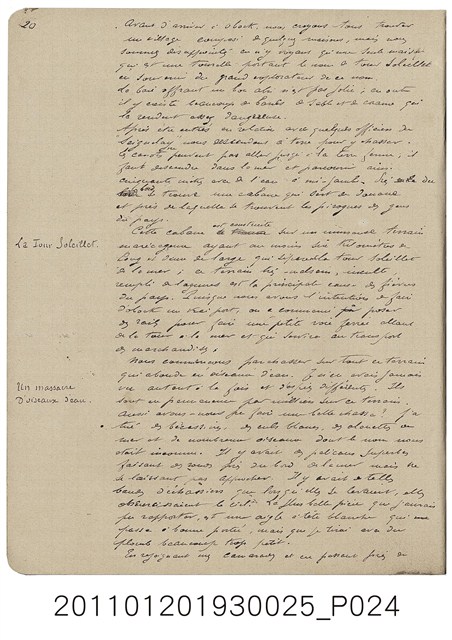 20
Avant d'arriver à Obock, nous croyions tous trouver
un village composé de quelques maisons, mais nous
sommes désappointés en n'y voyant qu'une seule maison
qui est une tourelle portant le nom de tour Soleillet
en souvenir du grand explorateur de ce nom.
La baie offrant un bon abri n'est pas jolie; en outre
il y existe beaucoup de bancs de sable et de coraux qui
la rendent assez dangereuse.
Après être entrés en relation avec quelques officiers du
Seignelay nous descendons à terre pour y chasser.
Les canots ne peuvent pas aller jusqu'à la terre ferme, il
faut descendre dans la mer et parcourir ainsi
cinquante mètres avec de l'eau à mi-jambe.
se trouve une cabane qui sert de douane
et près de laquelle se trouvent les pirogues des gens
du pays.
La Tour Soleillet.
Cette cabane est construite sur un immense terrain
marécageux ayant au moins six kilomètres de
long et deux de large qui sépare la tour Soleillet
de la mer; ce terrain très malsain, inculte,
rempli de lagunes est la principal cause des fièvres
du pays. Puisque nous avons l'intention de faire
d'Obock un vrai port, on a commencé par poser
des rails pour faire une petite voie ferrée allant
de la tour à la mer et qui servira au transport
des marchandises.
Un massacre
D'oiseaux d'eau.
Nous commençons par chasser sur tout ce terrain
qui abonde en oiseaux d'eau. Je n'en avais jamais
vu autant à la fois et d'espèces différentes. Ils
sont en permanence par millions sur ce terrain.
Aussi avons-nous pu faire une belle chasse! J'ai
tué des bécassines, des culs blancs, des alouettes de
mer et de nombreux oiseaux dont le nom nous
était inconnu. Il y avait des pélicans superbes
faisant des ronds près du bord de la mer mais ne
se laissant pas approcher. Il y avait de telles
bandes d'échassiers que lorsqu'elles se levaient, elles
obscurcissaient le ciel. La plus belle pièce que j'aurais
pu rapporter, est un aigle à tête blanche qui me
passa à bonne portée, mais que je tirai avec du
plomb beaucoup trop petit.
En rejoignant mes camarades et en passant près de
201101201930025_P024